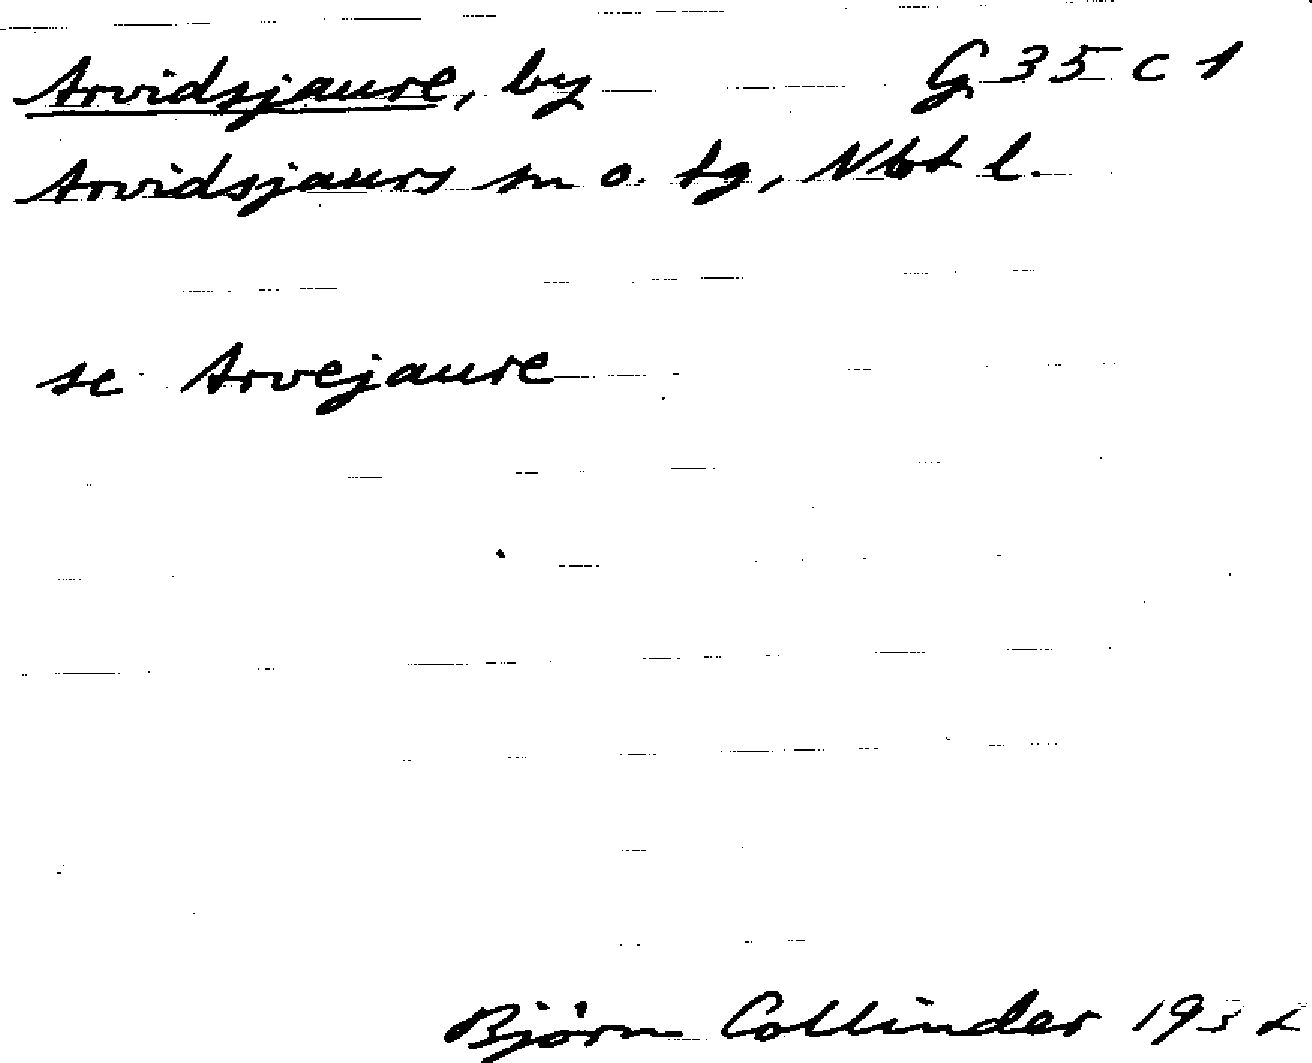 Arvidsjaure, by G 35 c 1
Arvidsjaurs sn o. tg, Nbt l.
se Arvejaure
Björn Collinder